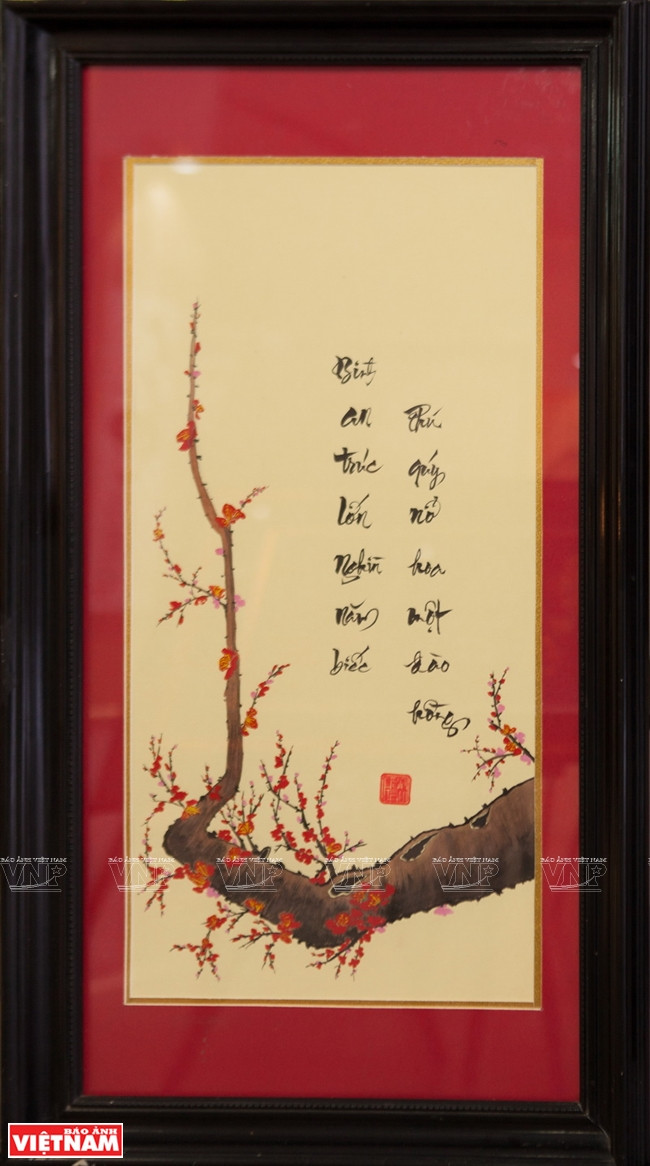 Bình
an
trúc
lớn
nghìn
năm
biếc
Phú
quý
nở
hoa
một
đào
hồng
BÁO ẢNH VIỆT NAM
VNP
BÁO ẢNH VIỆT NAM
VNP
BÁO ẢNH VIỆT NAM
VNP
BÁO ẢNH VIỆT NAM
VNP
BÁO ẢNH VIỆT NAM
VNP
BÁO ẢNH VIỆT NAM
VNP
BÁO ẢNH
VIỆTNAM